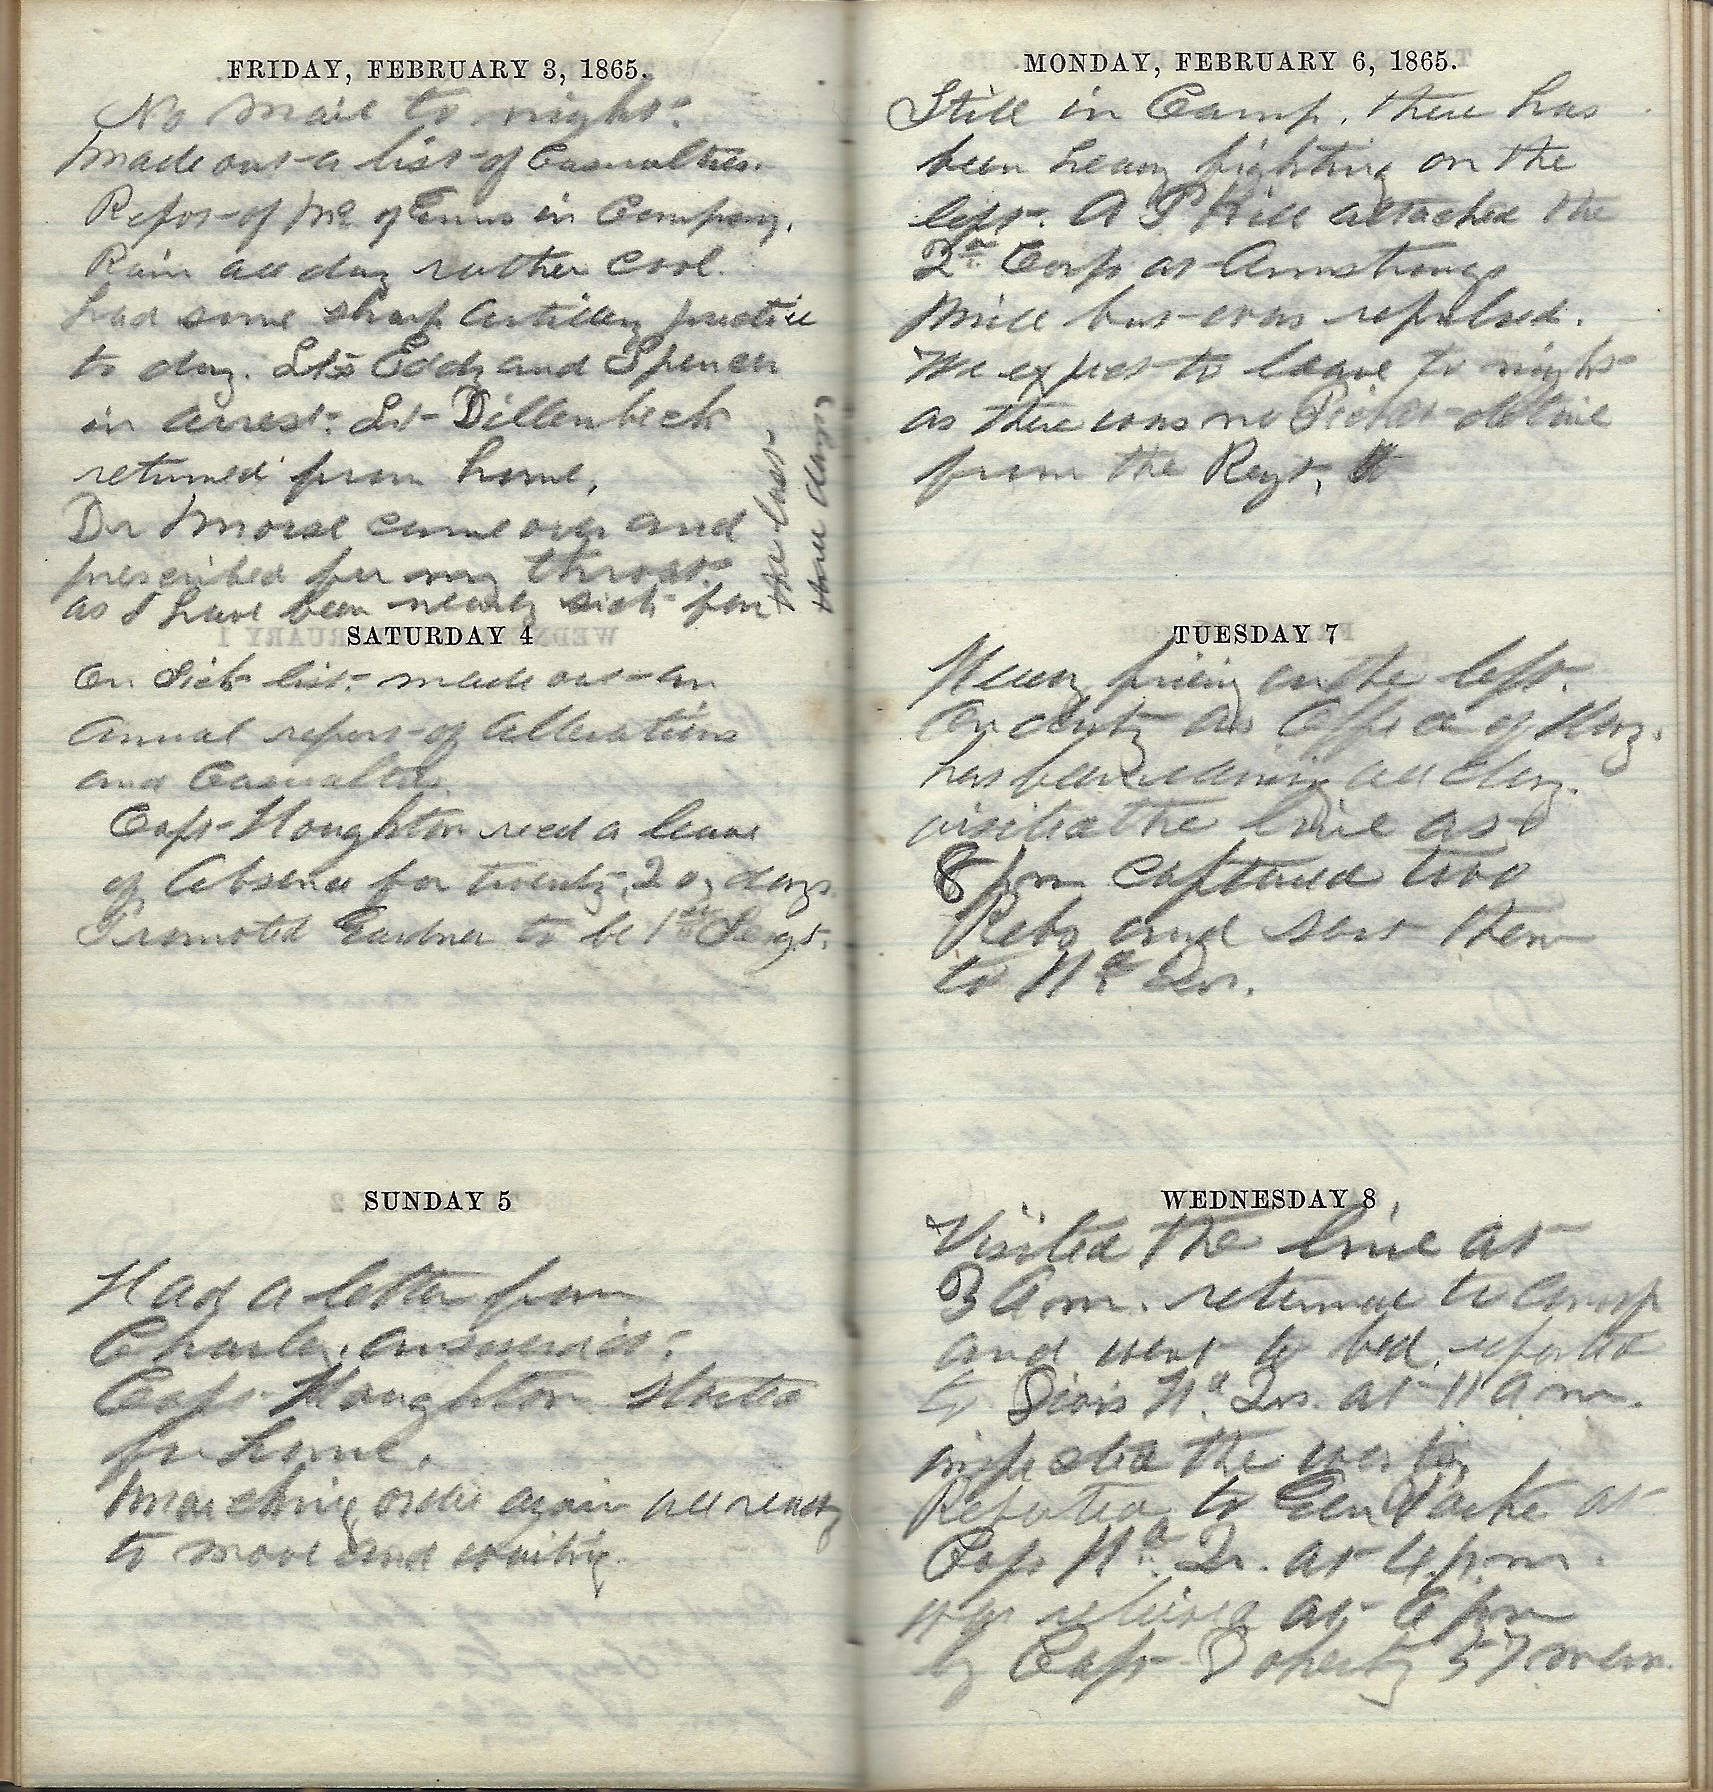 FRIDAY, FEBRUARY 3, 1865.
No mail to night.
Made out a list of Casualties.
Report of Me of Enns in Company.
Rain all day rather cool.
had some sharp Artillery practice
to day. Lts Eddy and Spencer
in arrest. Lt Dillenbeck
returned from home,
Dr Morse came over and
prescribed for my throat
as I have been nearly sick for
the last
three days
SATURDAY 4
On Sick list. made out an
Annual report of Alterations
and Casualties.
Capt Houghton recd a leave
of Absence for twenty, 20, days.
Promoted Gardner to be 1st Sergt.
SUNDAY 5
Had a letter from
Charley. answerd it.
Capt Houghton started
for home.
Marching orders again all ready
to move and waiting.
MONDAY, FEBRUARY 6, 1865.
Still in Camp. there has
been heavy fighting on the
left. A P Hill attacked the
2d Corps at Armstrongs
Mill but was repulsed.
We expect to leave to night
as there was no Picket detail
from the Regt.
TUESDAY 7
Heavy firing on the left.
On duty as Officer of Day.
has been raining all day.
visited the line at
8 pm captured two
Rebs and sent them
to Hd Qrs.
WEDNESDAY 8
Visited the line at
3 Am. returned to Camp
and went to bed. reported
to Divis Hd Qrs. at 11 a m.
inspected the works
Reported to Gen Parke at
Corps Hd Qr. at 4 p.m.
was relieved at 6 pm
by Capt Doherty 57 Mass.